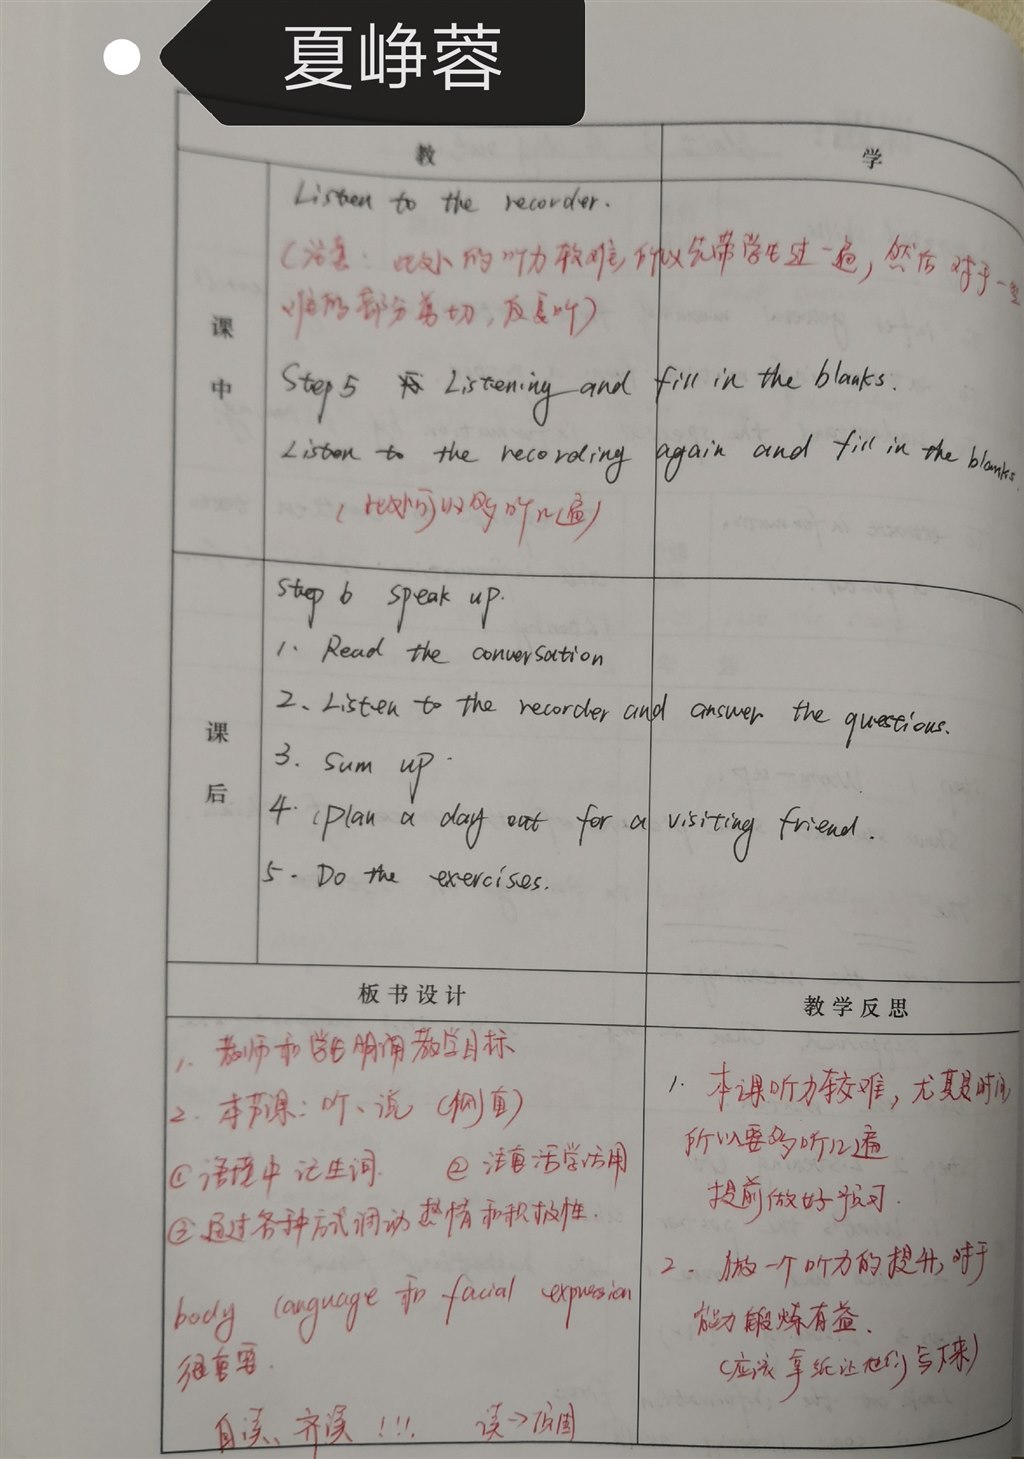 夏峥蓉
教 学
Listen to the recorder.
(注意：此处的听力较难，所以先带学生过一遍，然后对于一些
难的部分剪切，反复听)
课
中
Step 5 Listening and fill in the blanks.
Listen to the recording again and fill in the blanks.
(此处可以多听几遍)
Step 6 speak up.
1. Read the conversation
2、Listen to the recorder and answer the questions.
课
3. Sum up.
后
4. Plan a day out for a visiting friend.
5. Do the exercises.
板书设计
1. 教师和学生明确教学目标
2. 本节课：听、说
①语境中记生词. ② 注重活学活用
③通过各种方式调动热情和积极性.
body language 和 facial expression
很重要.
自读、齐读 !!! 读→
教学反思
1. 本课听力较难，尤其是时间
所以要多听几遍
提前做好预习.
2. 做一个听力的提升，对于
能力锻炼有益.
(应该拿纸让他们写下来)